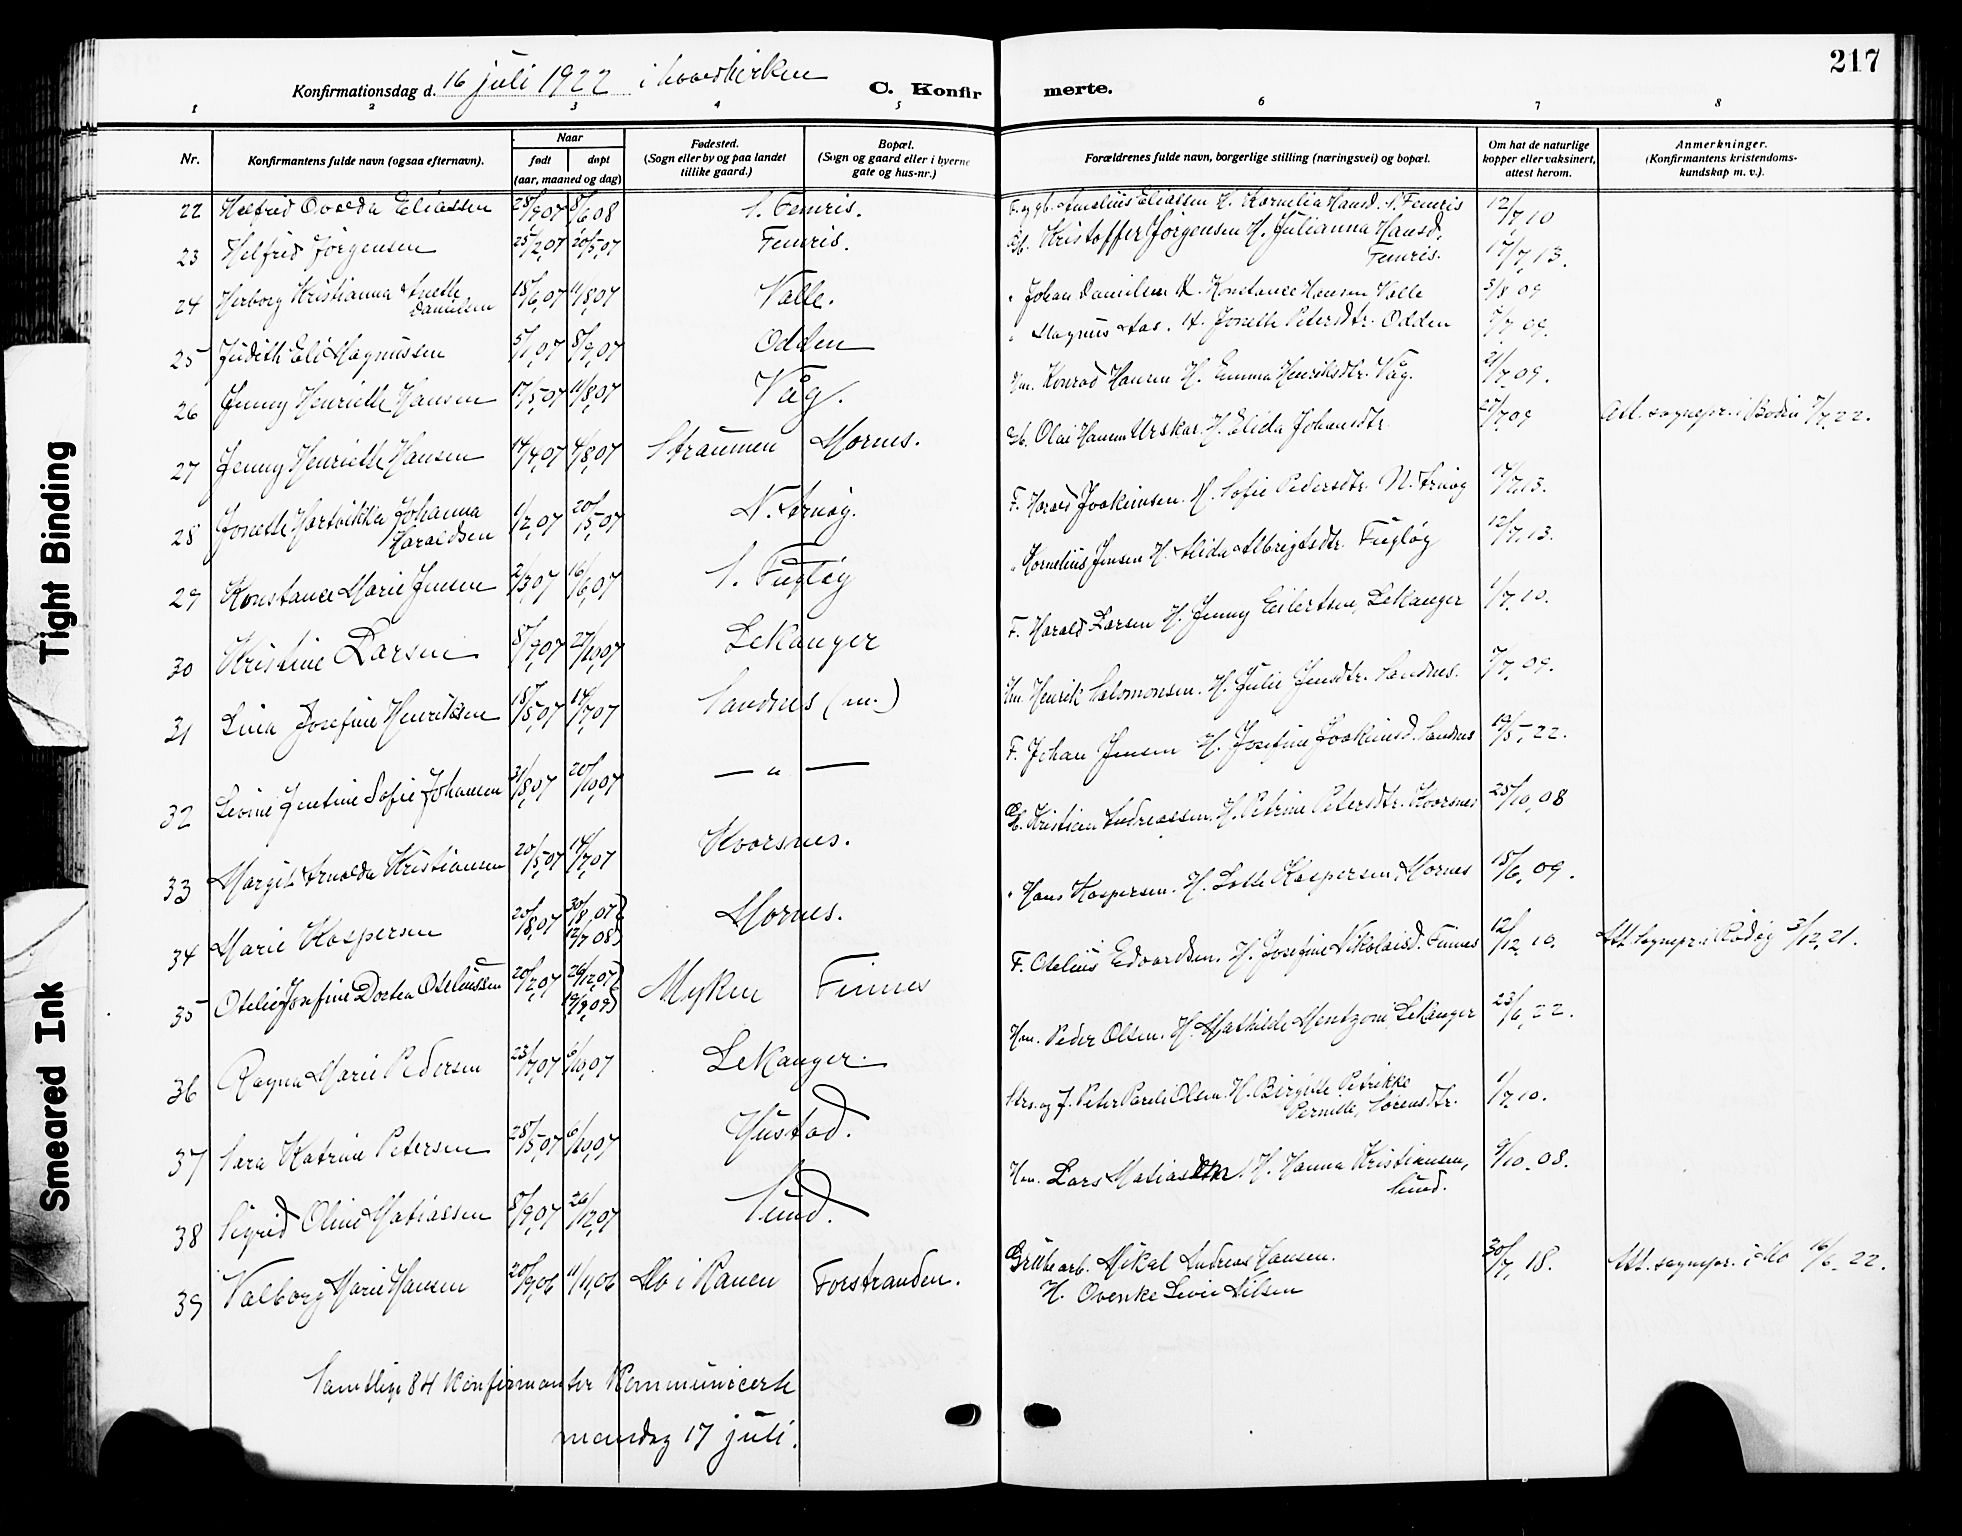 217
Konfirmationsdag d. 16 juli 1922 i hovedkirken
C. Konfirmerte.
1 2 3 4 5 6 7 8
Nr.
Konfirmantens fulde navn (ogsaa efternavn).
Naar
født døpt
(aar, maaned og dag)
Fødested.
(Sogn eller by og paa landet
tillike gaard.)
Bopæl.
(Sogn og gaard eller i byerne
gate og hus-nr.)
Forældrenes fulde navn, borgerlige stilling (næringsvei) og bopæl.
Om hat de naturlige
kopper eller vaksinert,
attest herom.
Anmerkninger.
(Konfirmantens kristendoms-
kundskap m. v.).
22 Helfrid Ovedda Eliassen 28/9,07 8/6 08 S. Femris. Amelius Eliassen H. Kornelia Hansd. S. Femris 12/7,10
23 Helfrid Jørgensen 25/2,07 20/5,07 Femris. Kristoffer Jørgensen H. Julianna Hansd.
Femris. 17/7,13.
24 Herborg Kristianna Anette
Danielsen 15/6,07 11/8,07 Valle. " Johan Danielsen H. Konstance Hansen Valle 3/8 09
25 Judith Eli Magnussen 5/1,07 8/9,07 Odden " Magnus Aas. H. Jonette Petersdtr. Odden 7/7 09.
26 Jenny Henriette Hansen 17/5,07 11/8,07 Våg. Konrad Hansen H. Emma Henriksdtr. Våg. 21/7,09.
27 Jenny Henriette Hansen 14/4,07 4/8,07 Straumen Mornes. Olai Hansen Urskar. H. Elida Johansdtr. 27/7,09 Att. sognepr. i Bodin 7/7,22.
28 Jonette Hartvikka Johanna
Haraldsen 1/2,07 20/5,07 N. Arnøy. F. Harald Joakimsen. H. Sofie Pedersdtr. N. Arnøy 7/7,13.
29 Konstance Marie Jensen 2/3,07 16/6,07 S. Fugløy " Kornelius Jensen H. Alida Albrigtsdtr. Fugløy 12/7,13.
30 Kristine Larsen 8/9,07 27/10,07 Lekanger F. Harald Larsen H. Jenny Eilertsen, Lekanger 1/7,10.
31 Lina Josefine Henriksen 18/5,07 14/7,07 Sandnes (m.) Henrik Salomonsen. H. Julie Jensdtr. Sandnes. 7/7,09.
32 Levine Jentine Sofie Johansen 31/8,07 20/10,07 — " — F. Johan Jensen H. Josefine Joakimsd. Sandnes 12/5,22.
33 Margit Arnolda Kristiansen 20/5,07 14/7,07 Kvarsnes. Kristian Andreassen. H. Petrine Petersdtr. Kvarsnes 25/10,08
34 Marie Kaspersen 20/8,07 30/8,07
12/7 08 Mornes. " Hans Kaspersen. H. Lotte Kaspersen, Mornes 15/6,09.
35 Otelie Josefine Dortea Oteliussen 20/2,07 26/12,07
19/9,09 Myken Finnes F. Otelius Edvardsen. H. Josefine Nikolaisd. Finnes 12/12,10. Att. Sognepr. i Rødøy 3/12,21.
36 Ragna Marie Pedersen 23/7,07 6/10,07 Lekanger. Peder Olsen. H. Mathilde Mentzoni, Lekanger 23/6,22.
37 Sara Katrine Petersen 28/5,07 6/10,07 Gustad. Peter Parelie Olsen. H. Birgitte Petrikke
Pernille, Sørensdtr. 1/7,10.
38 Sigrid Oline Matiassen 8/9,07 26/12,07 Sund. Lars Matiassen. H. Hanna Kristiansen,
Sund. 9/10,08.
39 Valborg Marie Hansen 20/9,06 11/11,06 Mo i Ranen Forstranden. Grubearb. Mikal Andreas Hansen.
H. Ovenke Levie Nilsen 30/7,18. Att. sognepr. i Mo 16/6,22.
Samtlige 84 konfirmanter kommunicerte
mandag 17 juli.
Tight Binding
Smeared Ink